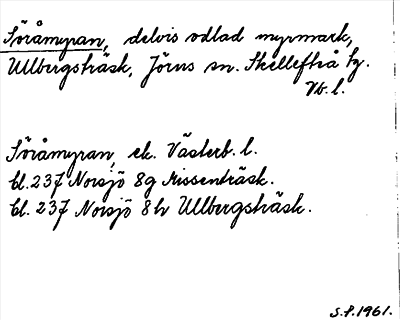 Söråmyran, delvis odlad myrmark,
Ullbergsträsk, Jörns sn. Skellefteå tg.
Vb. l.
Söråmyran, ek. Västerb. l.
bl. 237 Norsjö 8g Missenträsk.
bl. 237 Norsjö 8h Ullbergsträsk.
S.P. 1961.